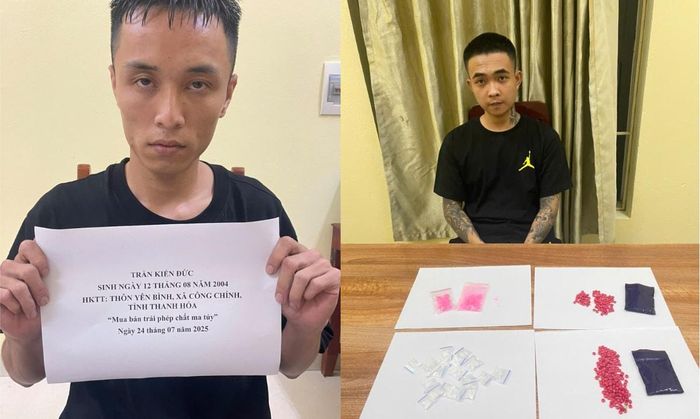 TRẦN KIẾN ĐỨC
SINH NGÀY 12 THÁNG 08 NĂM 2004
HKTT: THÔN YÊN BÌNH, XÃ CÔNG CHÍNH,
TỈNH THANH HÓA
“Mua bán trái phép chất ma túy”
Ngày 24 tháng 07 năm 2025